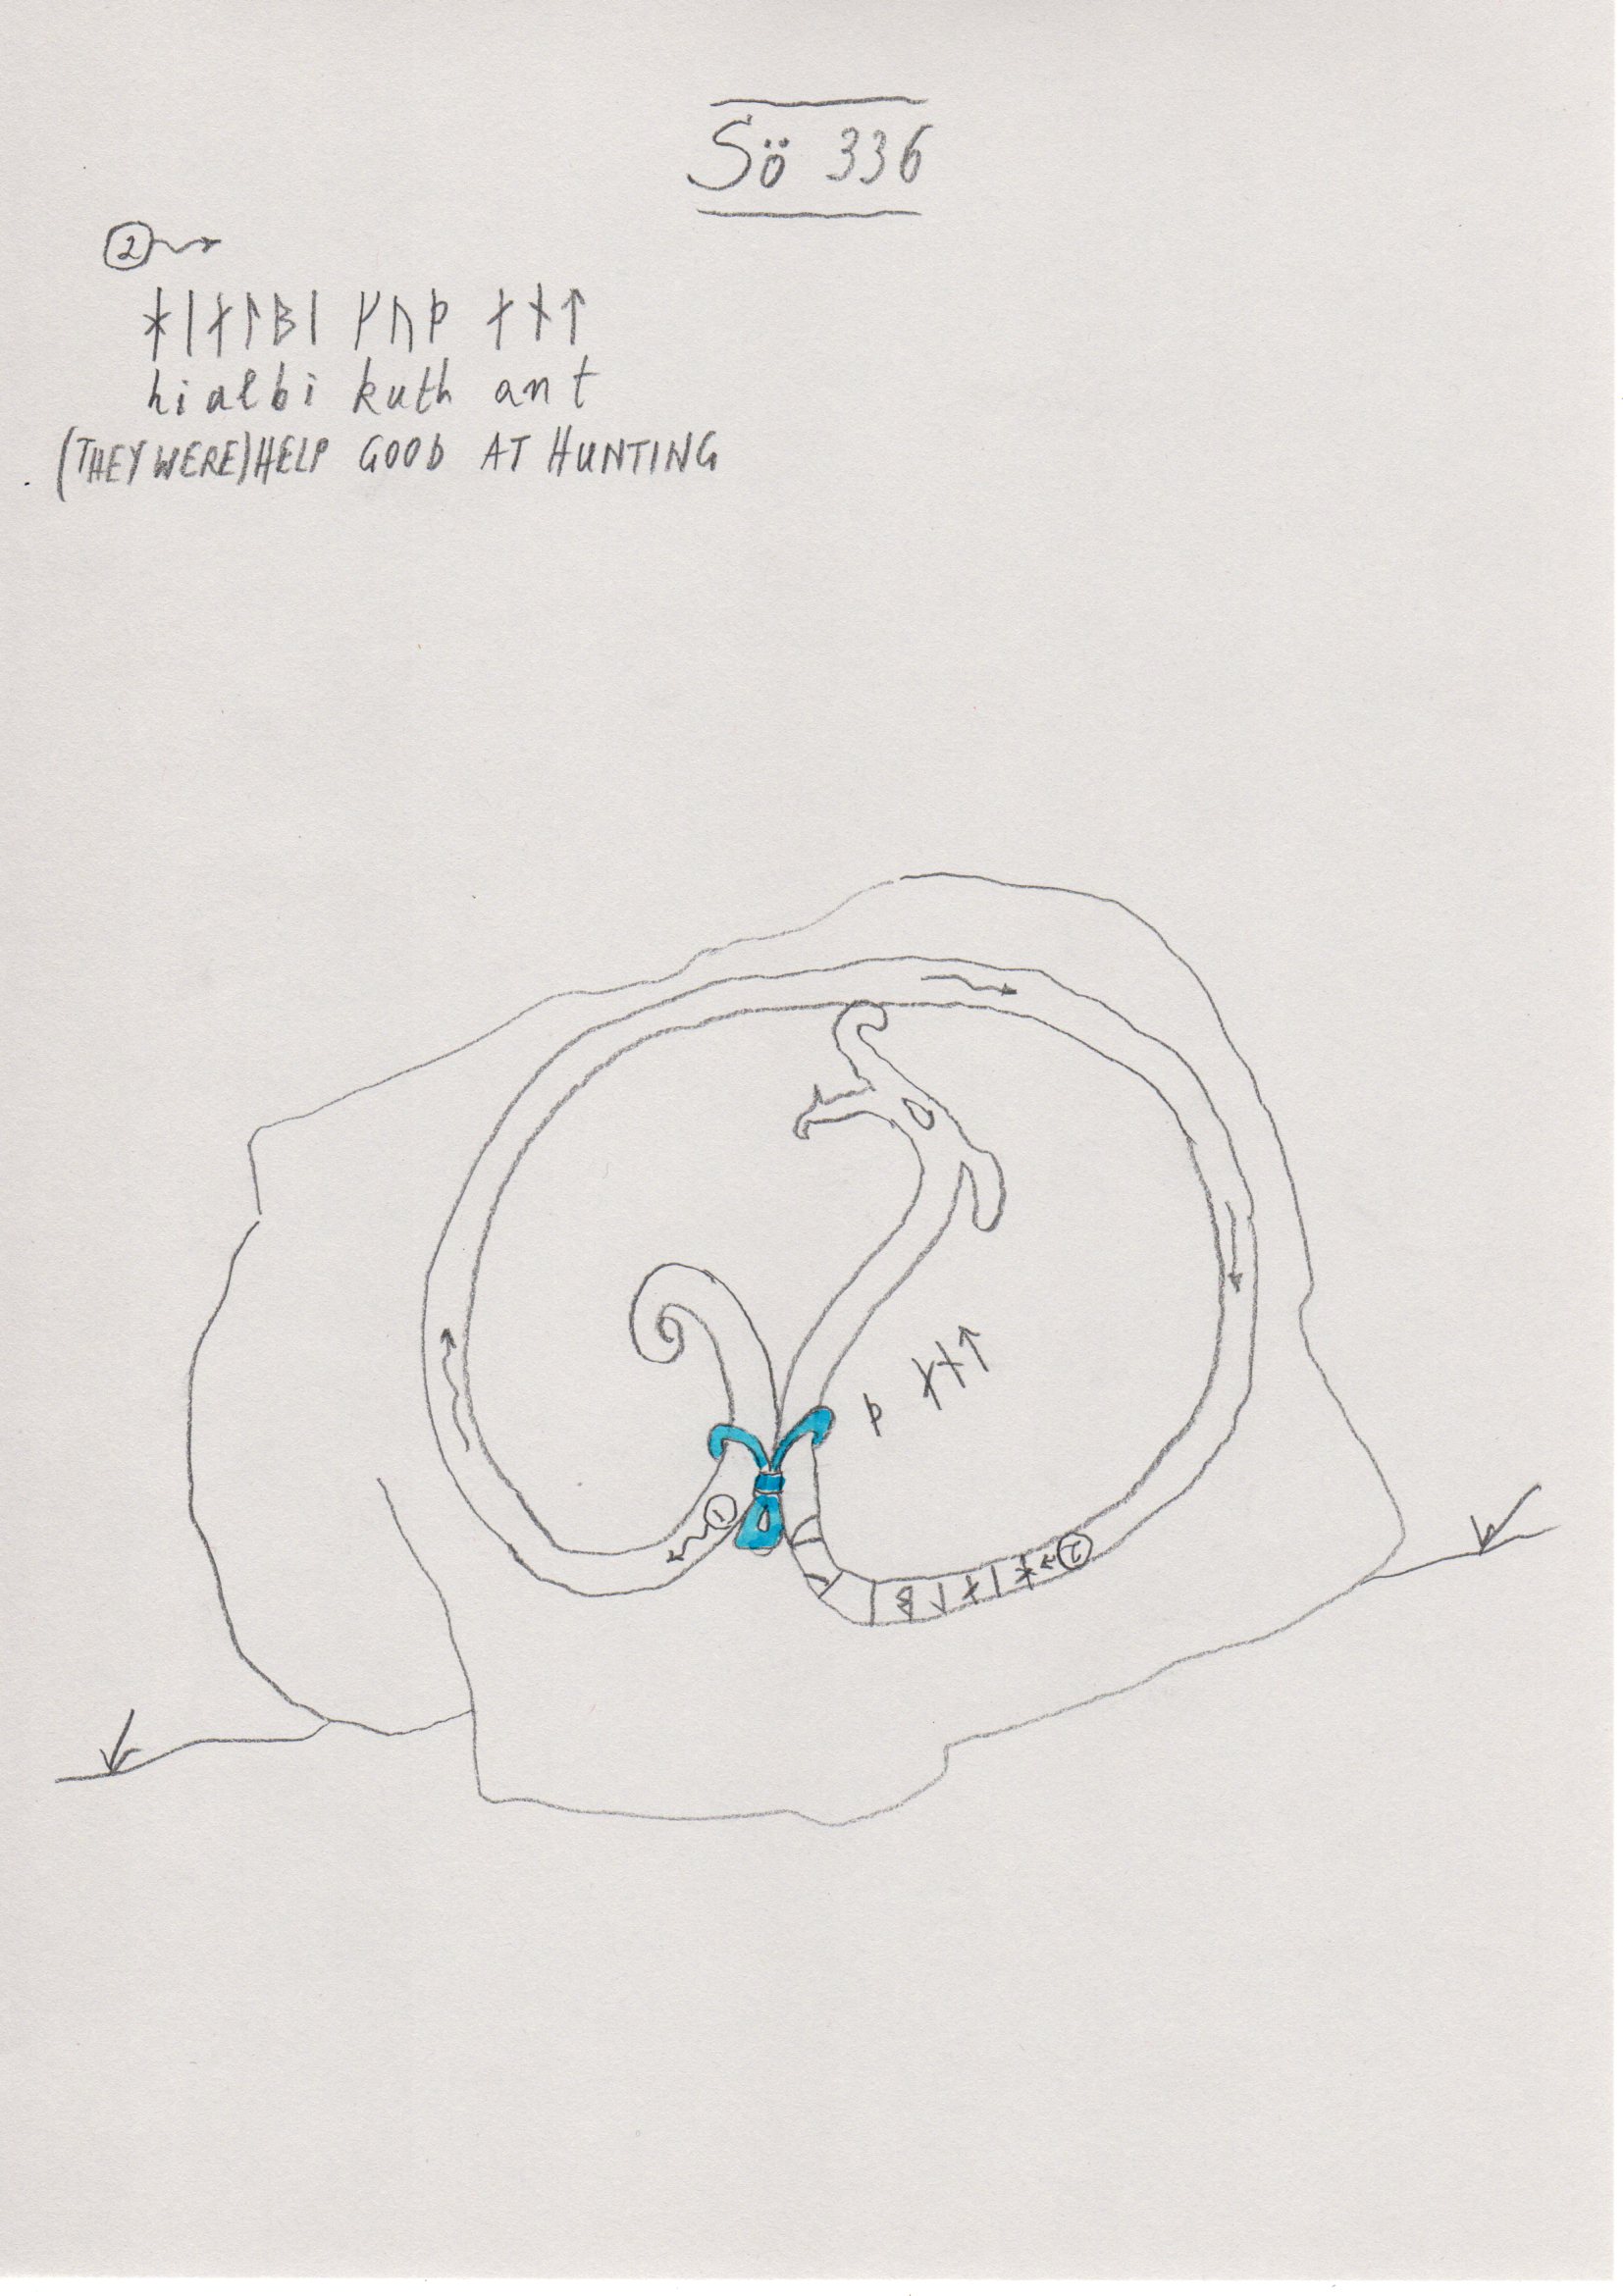 Sö 336
2
ᚼᛁᛅᛚᛒᛁ ᚴᚢᚦ ᛅᚾᛏ
hialbi kuth ant
(THEY WERE) HELP GOOD AT HUNTING
ᚦ ᛅᚾᛏ
1
2
ᚼᛁᛅᛚᛒᛁᚴᚢ